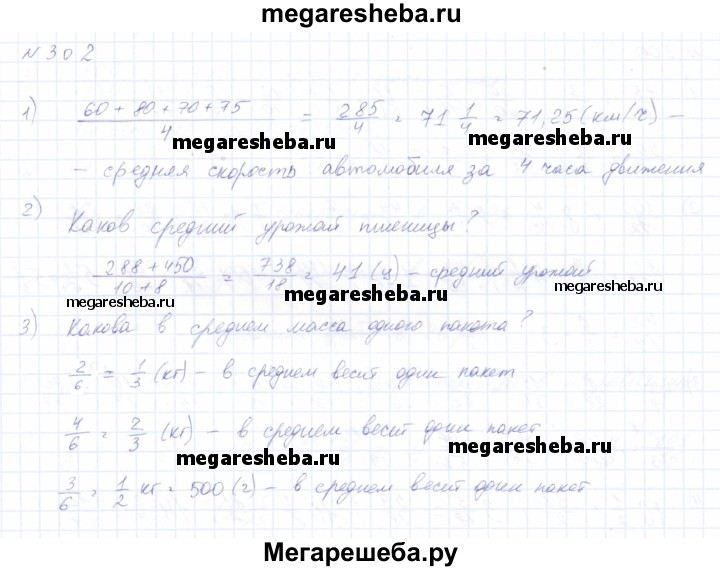 megaresheba.ru
N 302
1) (60 + 80 + 70 + 75)/4 = 285/4 = 71 1/4 = 71,25 (км/ч) –
megaresheba.ru megaresheba.ru
– средняя скорость автомобиля за 4 часа движения
2) Каков средний урожай пшеницы?
(288 + 450)/(10 + 8) = 738/18 = 41 (ц) – средний урожай
megaresheba.ru megaresheba.ru megaresheba.ru
3) Какова в среднем масса одного пакета?
2/6 = 1/3 (кг) – в среднем весит один пакет
4/6 = 2/3 (кг) – в среднем весит один пакет
megaresheba.ru megaresheba.ru
3/6 = 1/2 кг = 500 (г) – в среднем весит один пакет
Мегарешеба.ру